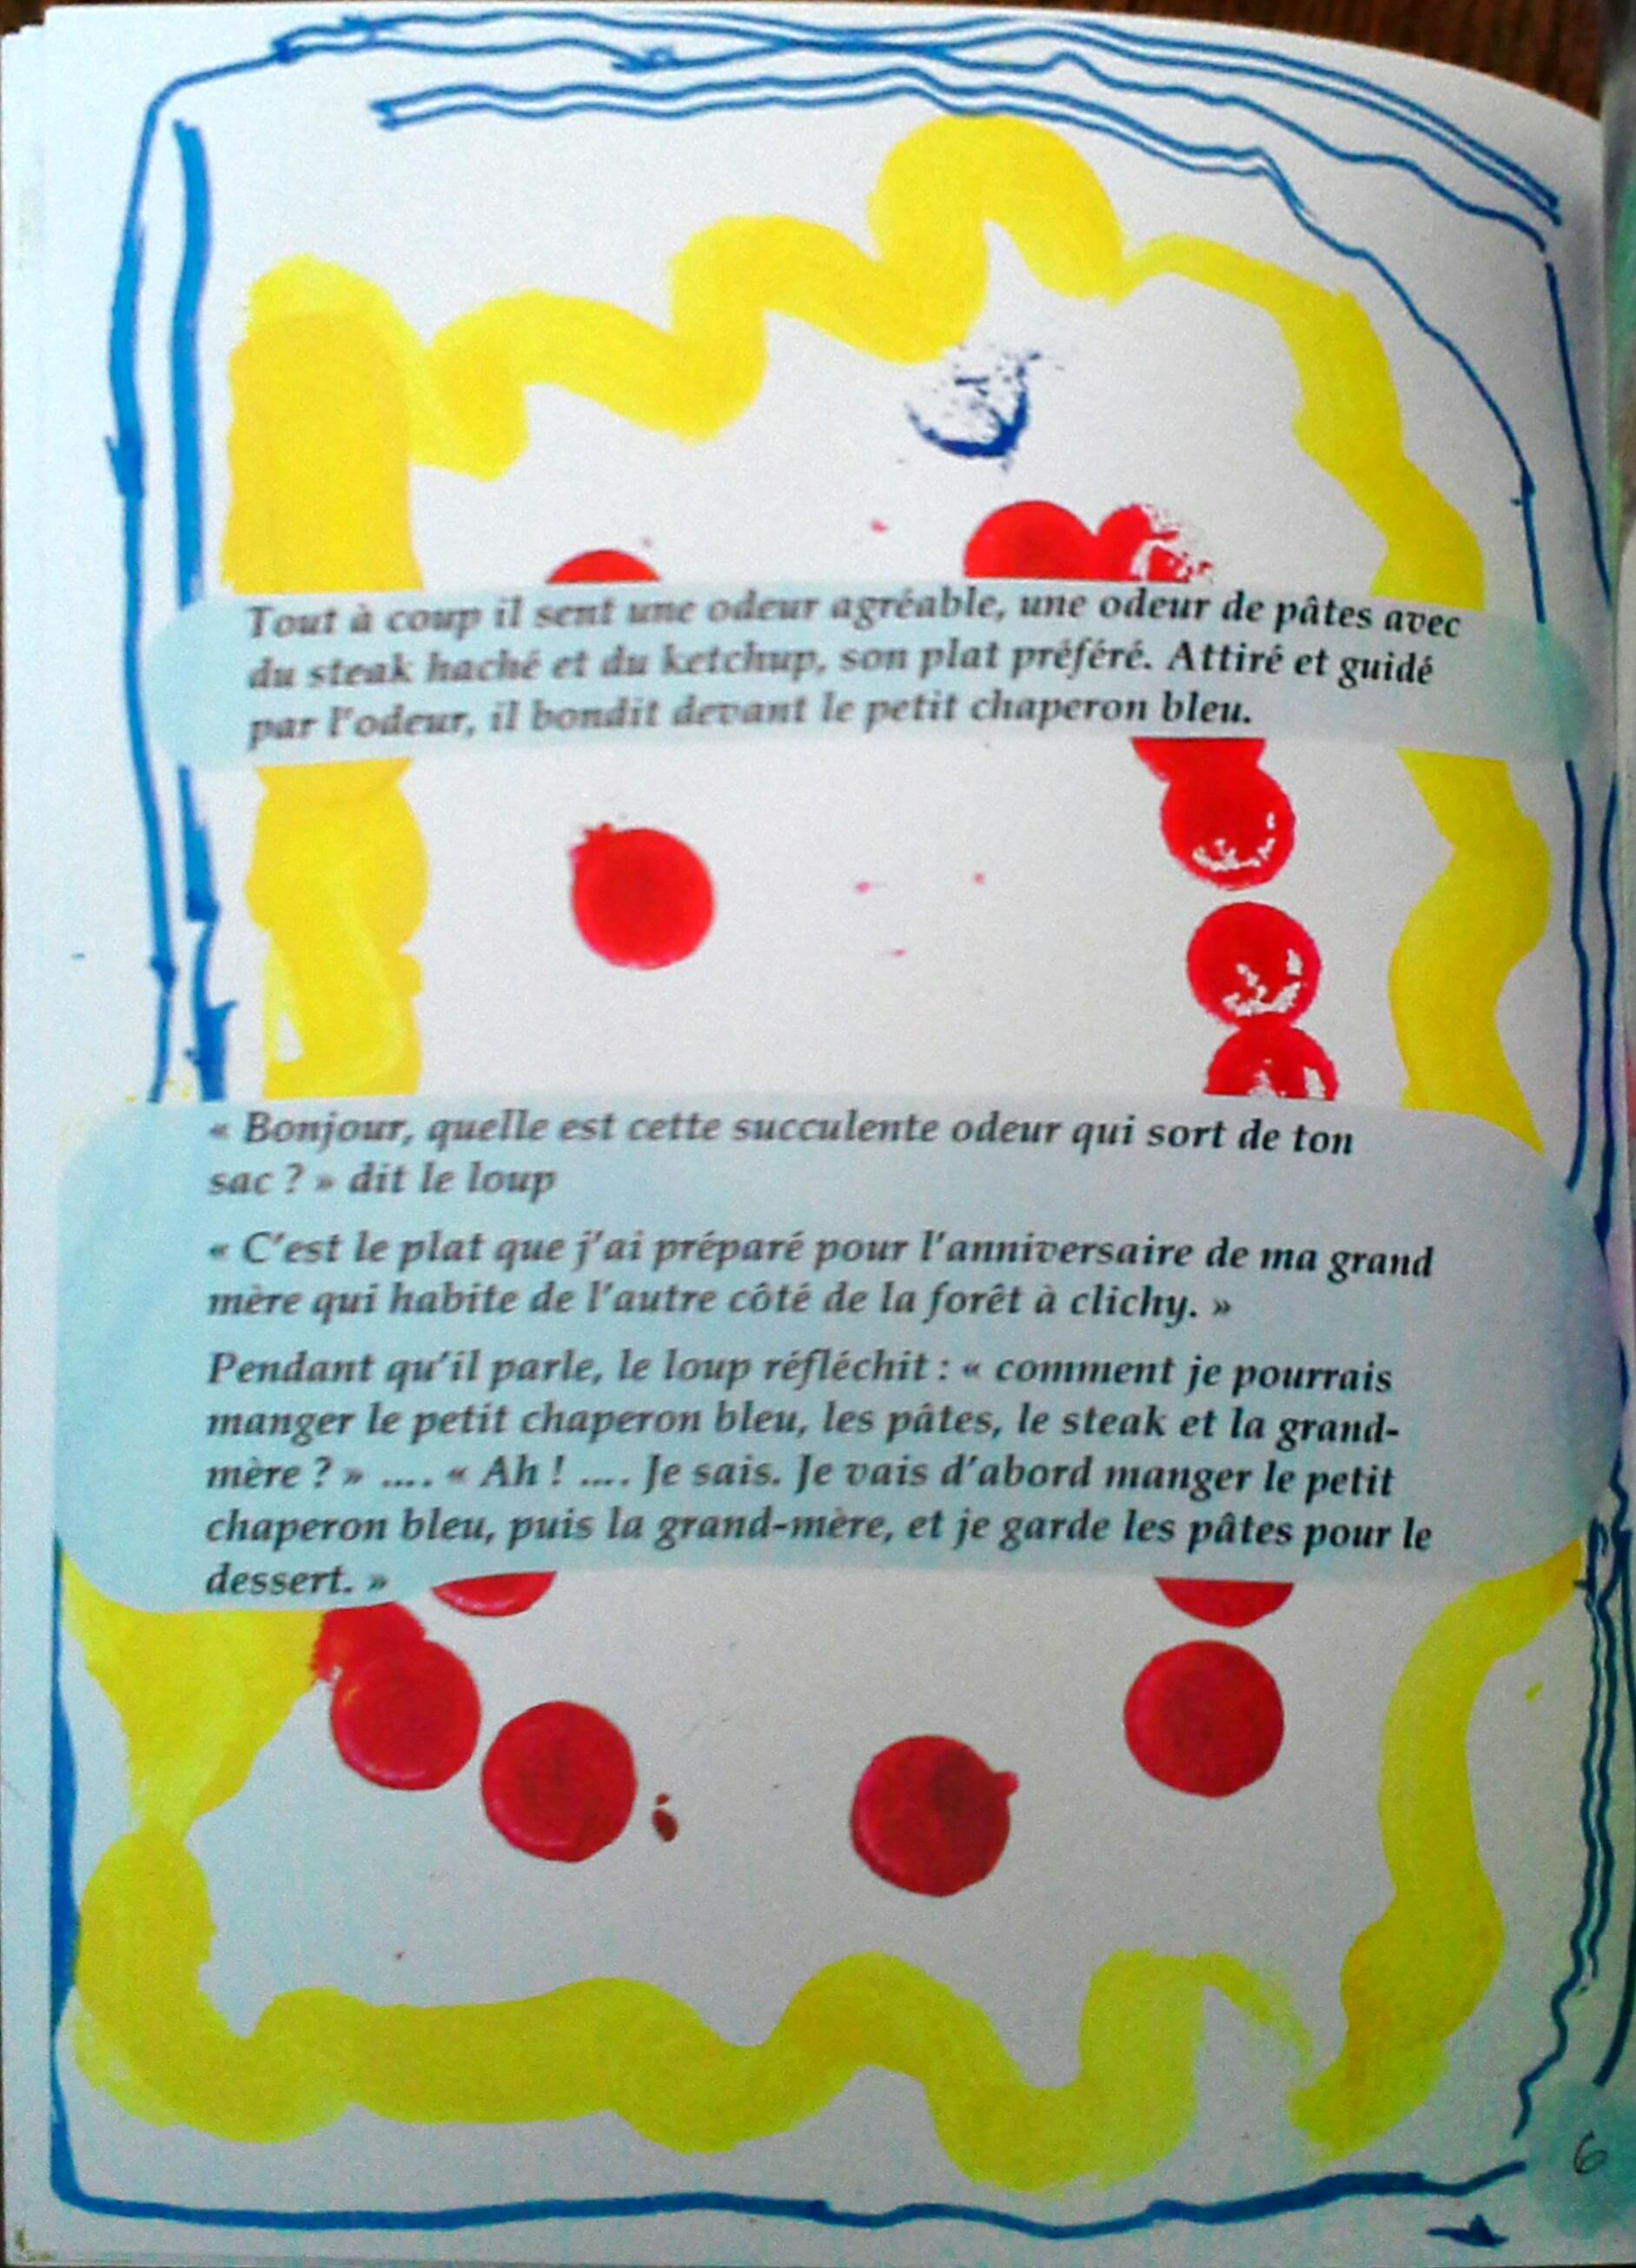 Tout à coup il sent une odeur agréable, une odeur de pâtes avec
du steak haché et du ketchup, son plat préféré. Attiré et guidé
par l'odeur, il bondit devant le petit chaperon bleu.
« Bonjour, quelle est cette succulente odeur qui sort de ton
sac ? » dit le loup
« C'est le plat que j'ai préparé pour l'anniversaire de ma grand
mère qui habite de l'autre côté de la forêt à clichy. »
Pendant qu'il parle, le loup réfléchit : « comment je pourrais
manger le petit chaperon bleu, les pâtes, le steak et la grand-
mère ? » .... « Ah ! .... Je sais. Je vais d'abord manger le petit
chaperon bleu, puis la grand-mère, et je garde les pâtes pour le
dessert. »
6